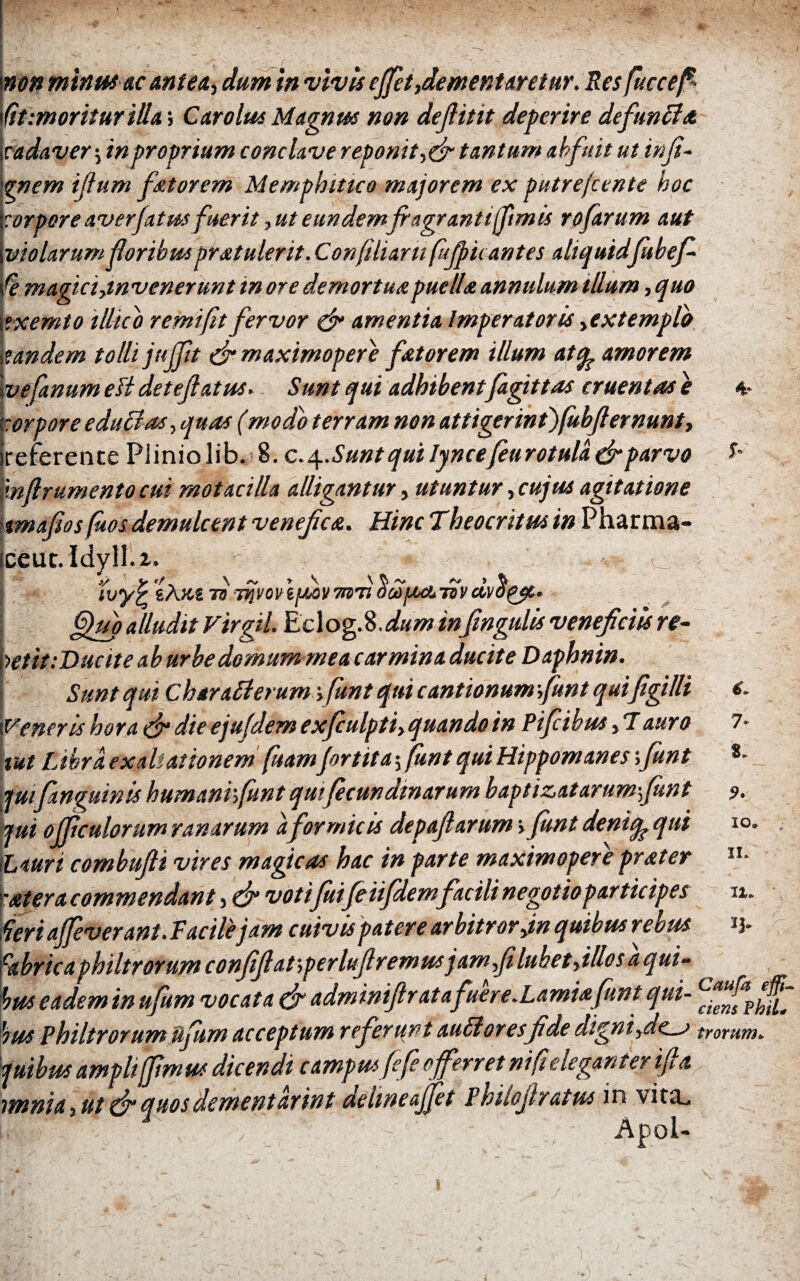 non minus ac antea, dum in vivis esset, dementaretur. Res succes-
sit: moritur illa; Carolus Magnus non destitit deperire defunctæ
cadaver; in proprium conclave reponit, & tantum abfuit ut insi-
gnem istum fœtorem Memphitico majorem ex putrescente hoc
corpore aversatus fuerit, ut eundem fragrantissimis rosarum aut
violarum floribus prætulerit. Consiliarii suspicantes aliquid subes-
se magici, invenerunt in ore demortuæ puellæ annulum illum, quo
exemto illicò remisit fervor & amentia Imperatoris, extemplò
eandem tolli jussit & maximoperè fœtorem illum atq; amorem
vesanum est detestatus. Sunt qui adhibent sagittas cruentas è 4.
corpore eductas, quas (modò terram non attigerint) substernunt,
referente Plinio lib. 8. c. 4. Sunt qui lynce seu rotulâ & parvo 5.
instrumento cui motacilla alligantur, utuntur, cujus agitatione
amasios suos demulcent veneficæ. Hinc Theocritus in Pharma-
ceut. Idyll. 2.
ἴυγξ ἕλκε τὸ τῆνον ἐμὸν ποτὶ δῶμα τὸν ἄνδρα.
Quò alludit Virgil. Eclog. 8. dum in singulis veneficiis re-
petit: Ducite ab urbe domum mea carmina ducite Daphnin.
Sunt qui Characterum; sunt qui cantionum; sunt qui sigilli 6.
Veneris hora & die ejusdem exsculpti, quando in Piscibus, Tauro 7.
aut Librâ exaltationem suam sortita; sunt qui Hippomanes; sunt 8.
qui sanguinis humani; sunt qui secundinarum baptizatarum; sunt 9.
qui ossiculorum ranarum à formicis depastarum; sunt deniq; qui 10.
Lauri combusti vires magicas hac in parte maximoperè præter 11.
cætera commendant, & voti sui se iisdem facili negotio participes 12.
fieri asseverant. Facilè jam cuivis patere arbitror, in quibus rebus 13.
fabrica philtrorum consistat; perlustremus jam, si lubet, illos à qui-
bus eadem in usum vocata & administrata fuêre. Lamiæ sunt qui- Causa effi-
bus Philtrorum usum acceptum referunt auctores fide digni, de ciens Phil-
quibus amplissimus dicendi campus sese offerret nisi eleganter ista trorum.
omnia, ut & quos dementârint delineasset Philostratus in vita
Apol-